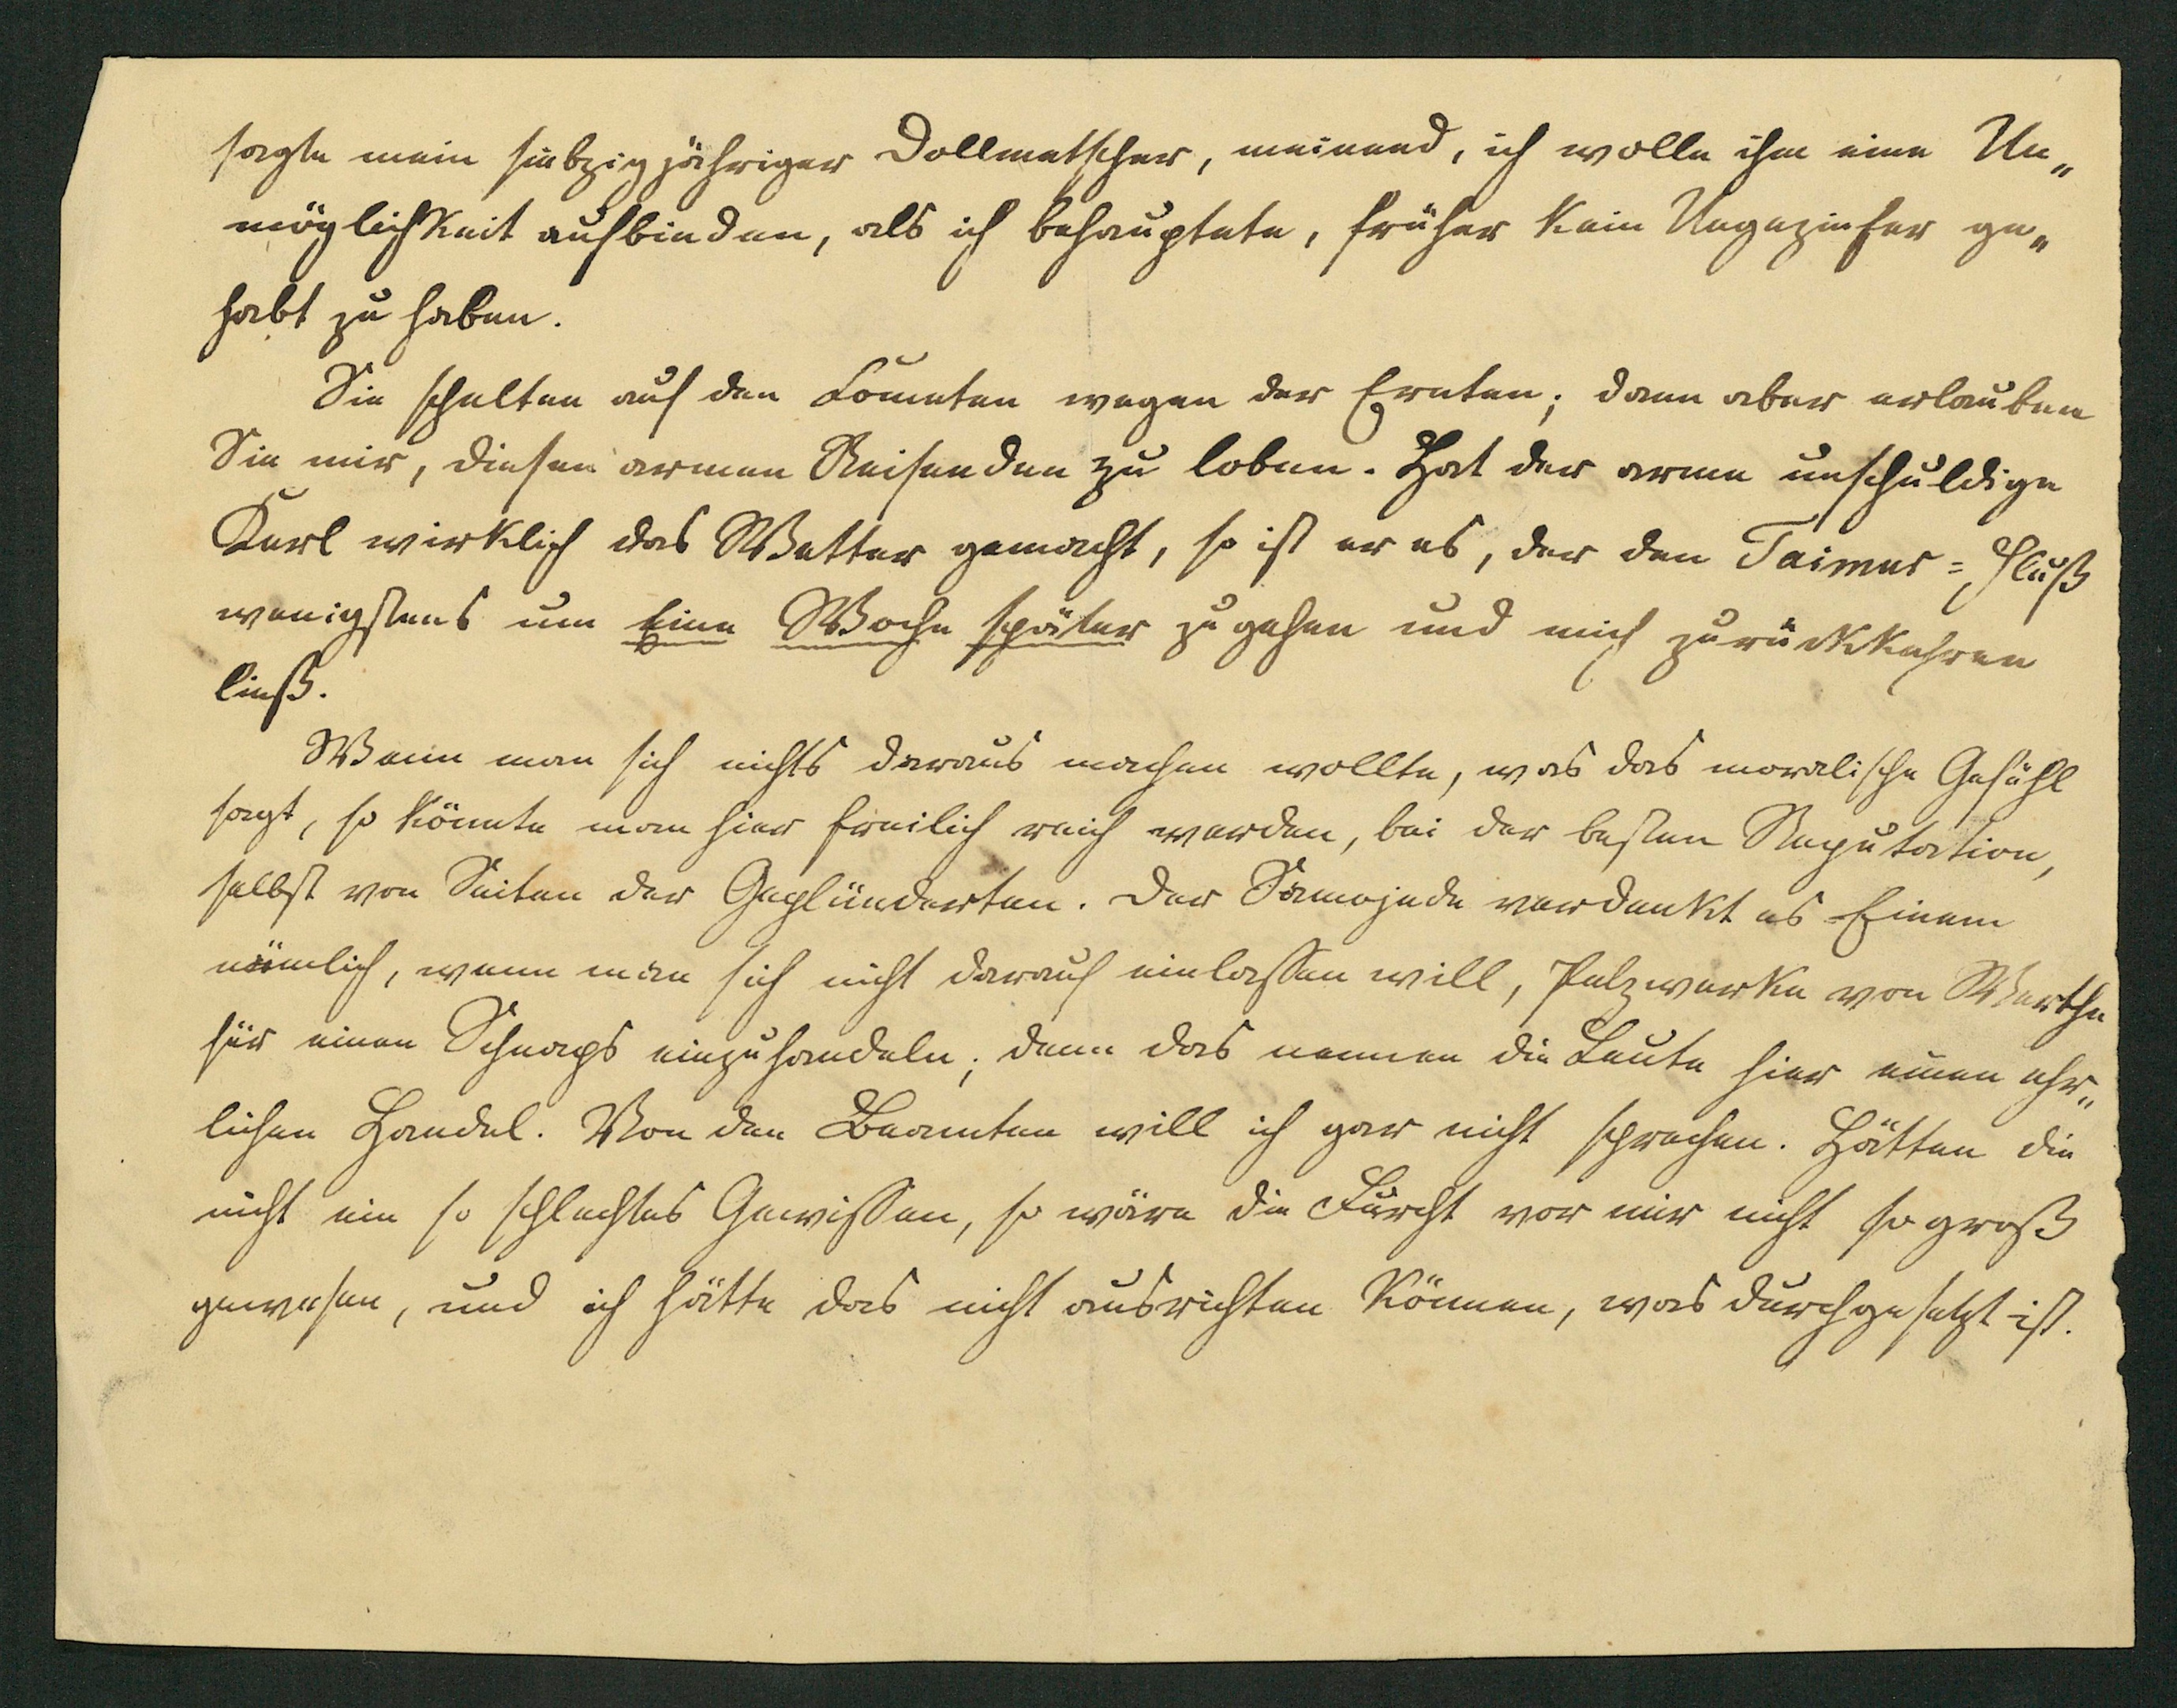 sagte mein siebzigjähriger Dollmetscher, meinend, ich wolle ihm eine Un„
möglichkeit aufbinden, als ich behauptete, früher kein Ungeziefer ge„
habt zu haben.
Sie schelten auf den Cometen wegen der Ernten; dann aber erlauben
Sie mir, diesen armen Reisenden zu loben. Hat der arme unschuldige
Kerl wirklich das Wetter gemacht, so ist er es, der den Taimur=Fluß
wenigstens um Eine Woche später zugehen und mich zurückkehren
ließ.
Wenn man sich nichts daraus machen wollte, was das moralische Gefühl
sagt, so könnte man hier freilich reich werden, bei der besten Reputation,
selbst von Seiten der Geplünderten. Der Samojede verdenkt es Einem
nämlich, wenn man sich nicht darauf einlassen will, Pelzwerke von Werthe
für einen Schnaps einzuhandeln; denn das nennen die Leute hier einen ehr„
lichen Handel. Von den Beamten will ich gar nicht sprechen. Hätten die
nicht ein so schlechtes Gewissen, so wäre die Furcht vor mir nicht so groß
gewesen, und ich hätte das nicht ausrichten können, was durchgesetzt ist.